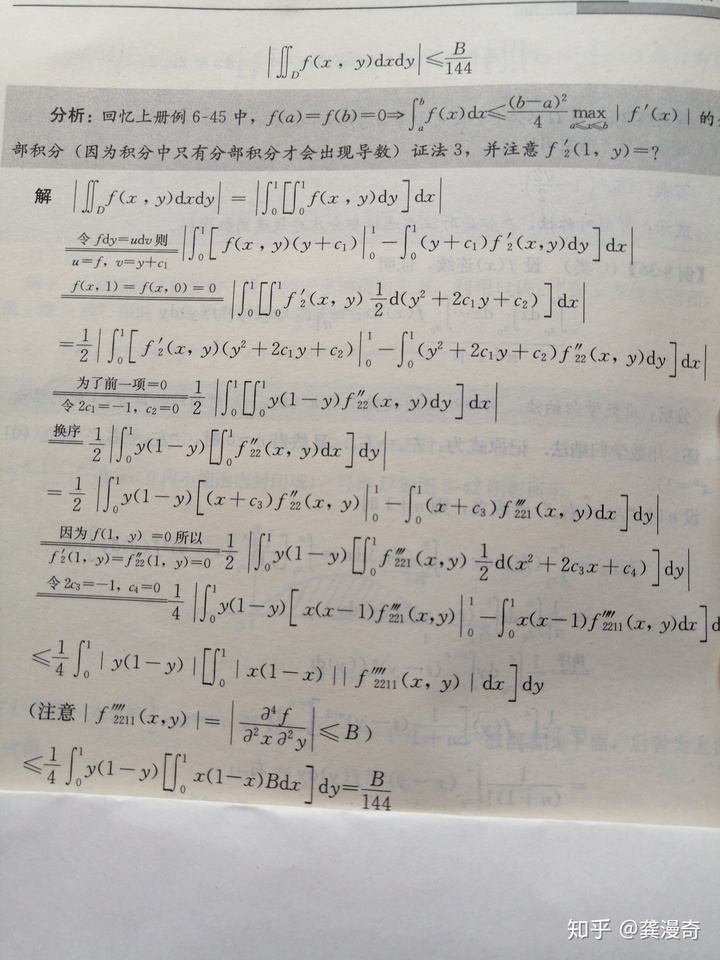 |∬_D f(x, y)dxdy|≤B/144
分析：回忆上册例 6-45 中，f(a)=f(b)=0⇒∫_a^b f(x)dx≤(b−a)²/4 max_{a≤x≤b} |f′(x)| 的
部积分（因为积分中只有分部积分才会出现导数）证法 3，并注意 f′₂(1, y)=?
解 |∬_D f(x, y)dxdy| = |∫₀¹[∫₀¹ f(x, y)dy]dx|
令 fdy=udv 则 u=f, v=y+c₁ |∫₀¹[f(x, y)(y+c₁)|₀¹−∫₀¹(y+c₁)f′₂(x,y)dy]dx|
f(x, 1)=f(x, 0)=0 |∫₀¹[∫₀¹ f′₂(x, y) 1/2 d(y²+2c₁y+c₂)]dx|
=1/2|∫₀¹[f′₂(x, y)(y²+2c₁y+c₂)|₀¹−∫₀¹(y²+2c₁y+c₂)f″₂₂(x, y)dy]dx|
为了前一项=0 令 2c₁=−1, c₂=0 1/2 |∫₀¹[∫₀¹ y(1−y)f″₂₂(x, y)dy]dx|
换序 1/2|∫₀¹ y(1−y)[∫₀¹ f″₂₂(x, y)dx]dy|
=1/2 |∫₀¹ y(1−y)[(x+c₃)f″₂₂(x, y)|₀¹−∫₀¹(x+c₃)f‴₂₂₁(x, y)dx]dy|
因为 f(1, y)=0 所以 f′₂(1, y)=f″₂₂(1, y)=0 1/2 |∫₀¹ y(1−y)[∫₀¹ f‴₂₂₁(x, y) 1/2 d(x²+2c₃x+c₄)]dy|
令 2c₃=−1, c₄=0 1/4 |∫₀¹ y(1−y)[x(x−1)f‴₂₂₁(x,y)|₀¹−∫₀¹ x(x−1)f⁗₂₂₁₁(x, y)dx]d
≤1/4 ∫₀¹ |y(1−y)|[∫₀¹ |x(1−x)||f⁗₂₂₁₁(x, y)|dx]dy
(注意|f⁗₂₂₁₁(x,y)|=|∂⁴f/∂²x∂²y|≤B)
≤1/4 ∫₀¹ y(1−y)[∫₀¹ x(1−x)Bdx]dy=B/144
知乎 @龚漫奇